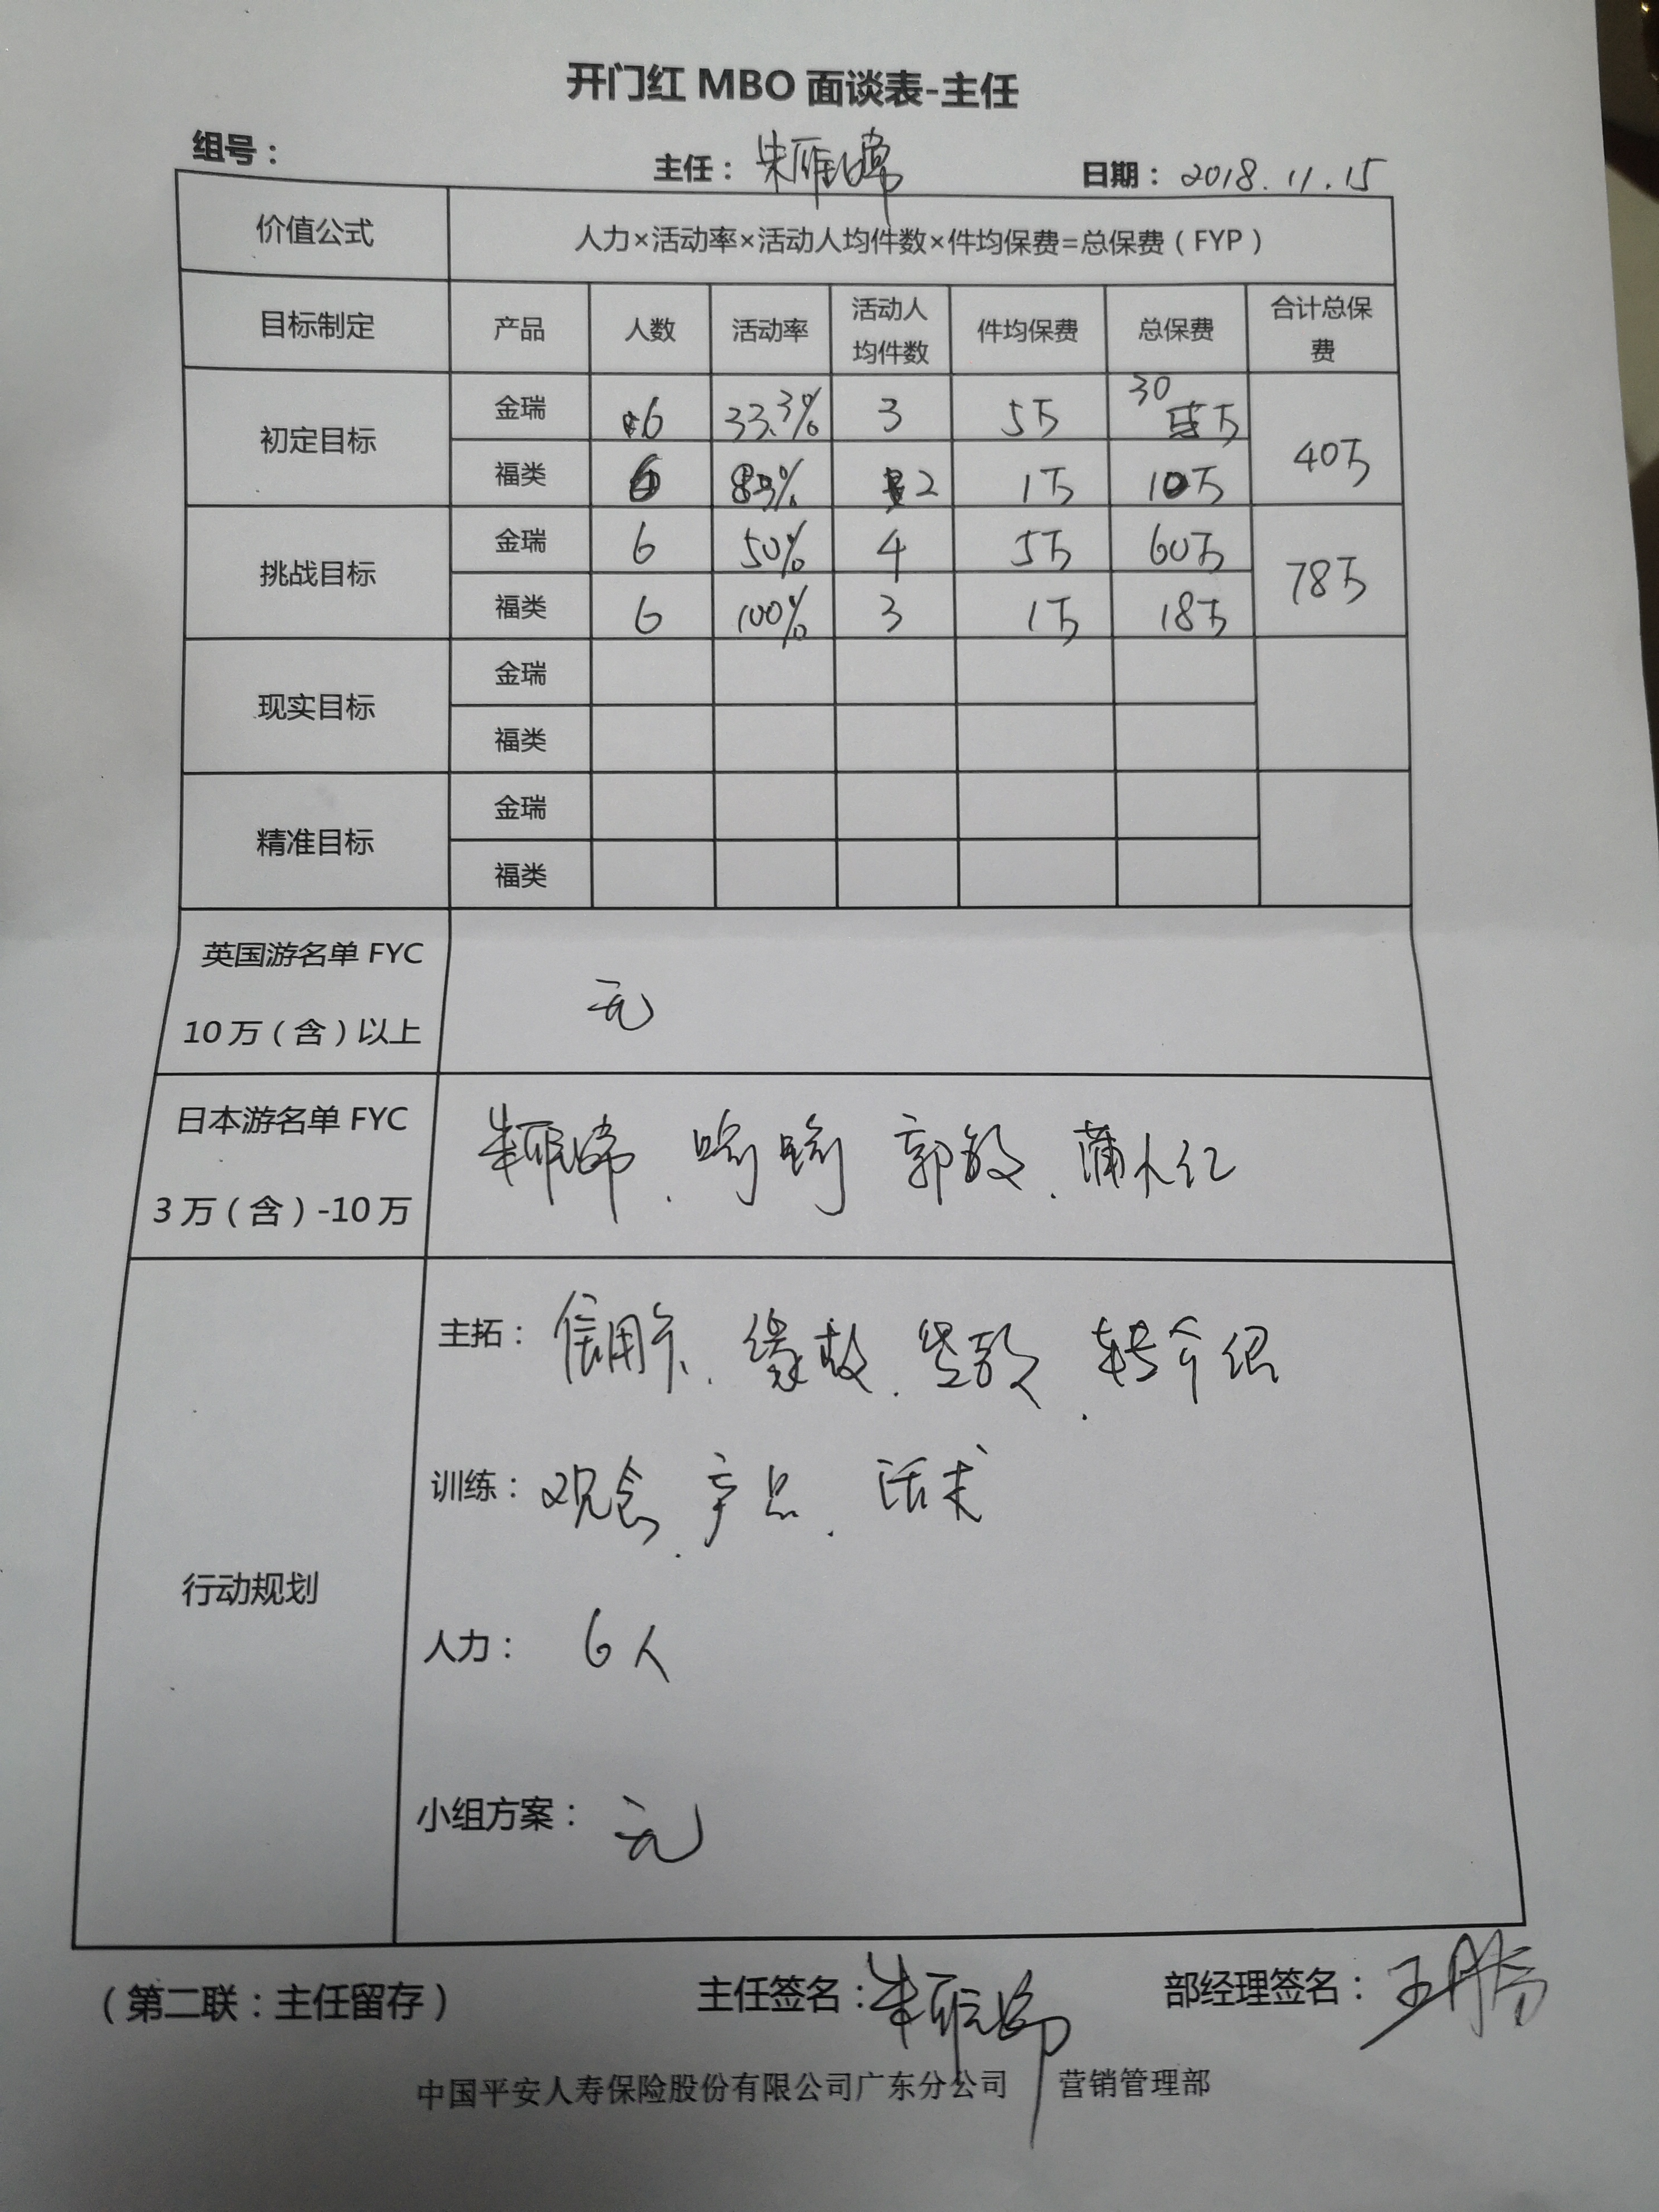 开门红 MBO 面谈表-主任
组号： 主任：朱雁 日期：2018.11.15
价值公式 人力×活动率×活动人均件数×件均保费=总保费（FYP）
目标制定 产品 人数 活动率 活动人均件数 件均保费 总保费 合计总保费
初定目标 金瑞 6 33.3% 3 5万 30万 40万
福类 6 % 2 1万 10万
挑战目标 金瑞 6 50% 4 5万 60万 78万
福类 6 100% 3 1万 18万
现实目标 金瑞
福类
精准目标 金瑞
福类
英国游名单 FYC
10万（含）以上 无
日本游名单 FYC
3万（含）-10万 朱雁 、 郭敏、蒲
行动规划
主拓：信用卡、缘故、贷款、转介绍
训练：观念、产品、话术
人力：6人
小组方案：无
（第二联：主任留存） 主任签名：朱雁 部经理签名：王
中国平安人寿保险股份有限公司广东分公司 营销管理部